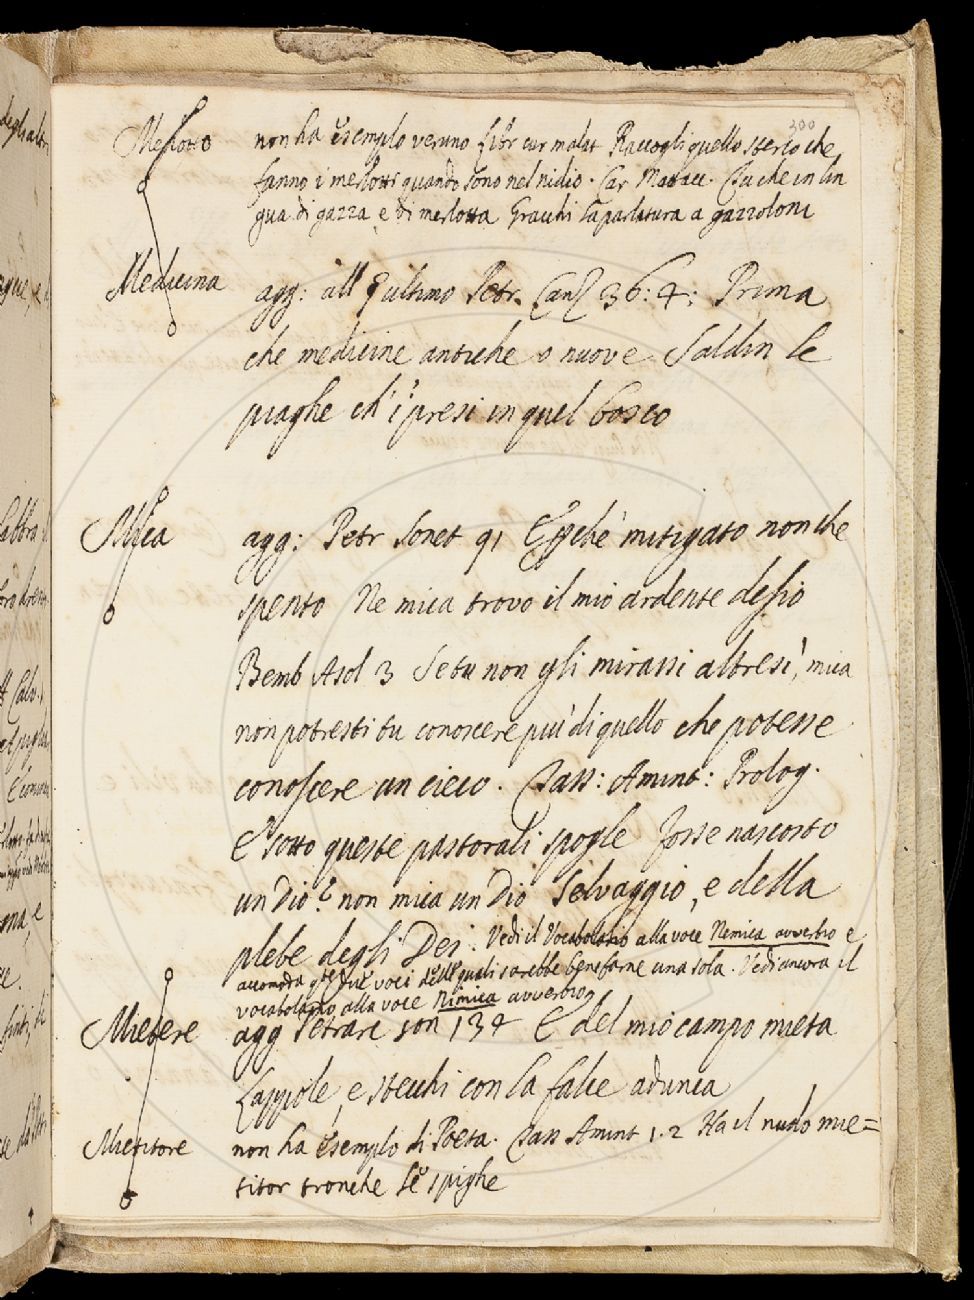 300
Merlotto non ha esempio veruno libr cur malat Raccogli quello sterco che
fanno i merlotti quando sono nel nidio. Car Mattacc. Tu che in lin
gua di gazza e di merlotta Gracchi la parlatura a gazzoloni
Medicina agg: all ultimo Petr. Canz 36:4: Prima
che medicine antiche o nuove Saldin le
piaghe ch'i presi in quel bosco
Mica agg: Petr Sonet 91 E perche mitigato non che
spento Ne mica trovo il mio ardente desio
Bemb Asol 3 Se tu non gli mirassi altresì, mica
non potresti tu conoscere più di quello che potesse
conoscere un cieco. Tass: Amint: Prolog.
E sotto queste pastorali spogle fosse nascosto
un Dio? non mica un Dio Selvaggio, e della
plebe degli Dei. Vedi il Vocabolario alla voce Nemica avverbio e
accomoda qte due voci delle quali sarebbe ben farne una sola. Vedi ancora il
vocabolario alla voce Nimica avverbio
Mietere agg Petrarc son 134 E del mio campo mieta
Lappole, e stecchi con la falce adunca
Mietitore non ha esemplo di Poeta. Tass Amint 1.2 Ha il nudo mie=
titor tronche le spighe